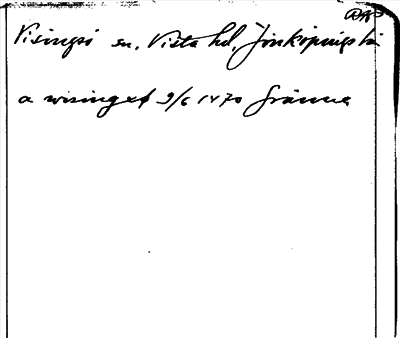 Visingsö sn, Vista hd, Jönköpings län
a wisingxö 9/6 1470 Gränna